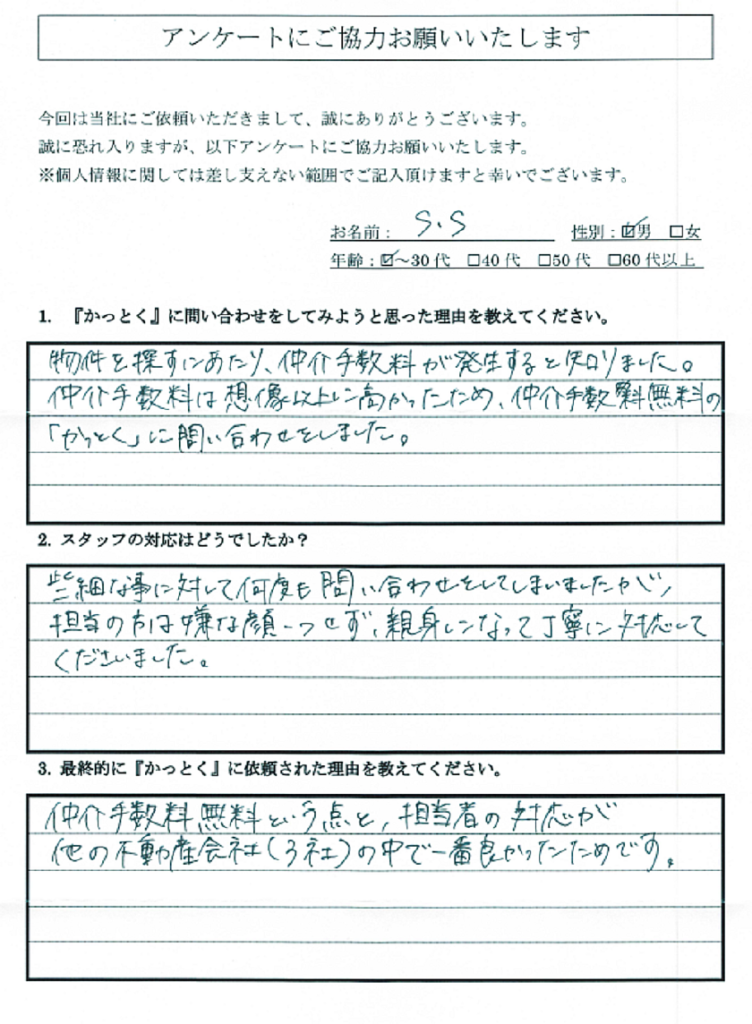 アンケートにご協力お願いいたします
今回は当社にご依頼いただきまして、誠にありがとうございます。
誠に恐れ入りますが、以下アンケートにご協力お願いいたします。
※個人情報に関しては差し支えない範囲でご記入頂けますと幸いでございます。
お名前： S.S 性別：☑男 □女
年齢：☑～30代 □40代 □50代 □60代以上
1. 『かっとく』に問い合わせをしてみようと思った理由を教えてください。
物件を探すにあたり、仲介手数料が発生すると知りました。
仲介手数料は想像以上に高かったため、仲介手数料無料の
「かっとく」に問い合わせをしました。
2. スタッフの対応はどうでしたか？
些細な事に対して何度も問い合わせをしてしまいましたが、
担当の方は嫌な顔一つせず、親身になって丁寧に対応して
くださいました。
3. 最終的に『かっとく』に依頼された理由を教えてください。
仲介手数料無料という点と、担当者の対応が
他の不動産会社(3社)の中で一番良かったためです。